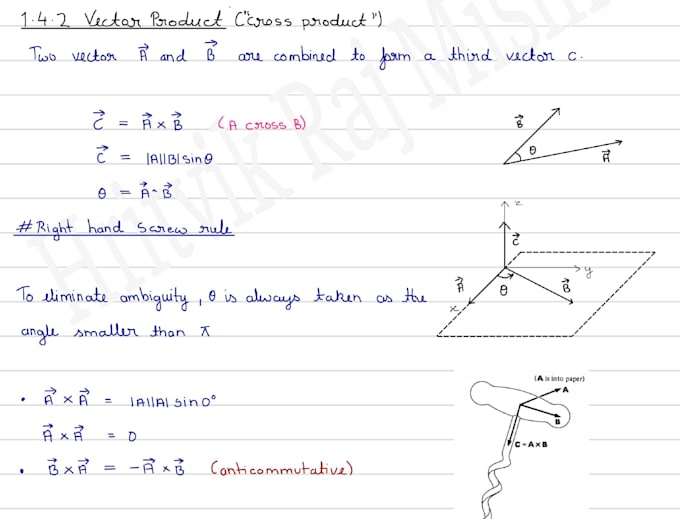 1.4.2 Vector Product ("cross product")
Two vector A⃗ and B⃗ are combined to form a third vector c.
C⃗ = A⃗ × B⃗ (A cross B)
C⃗ = |A||B| sin θ
θ = A⃗ ^ B⃗
B⃗
θ
A⃗
# Right hand screw rule
z
C⃗
y
A⃗
θ
B⃗
x
To eliminate ambiguity, θ is always taken as the
angle smaller than π
• A⃗ × A⃗ = |A||A| sin 0°
A⃗ × A⃗ = 0
• B⃗ × A⃗ = -A⃗ × B⃗ (anticommutative)
(A is into paper)
A
B
C = A × B
Hritvik Raj Mish